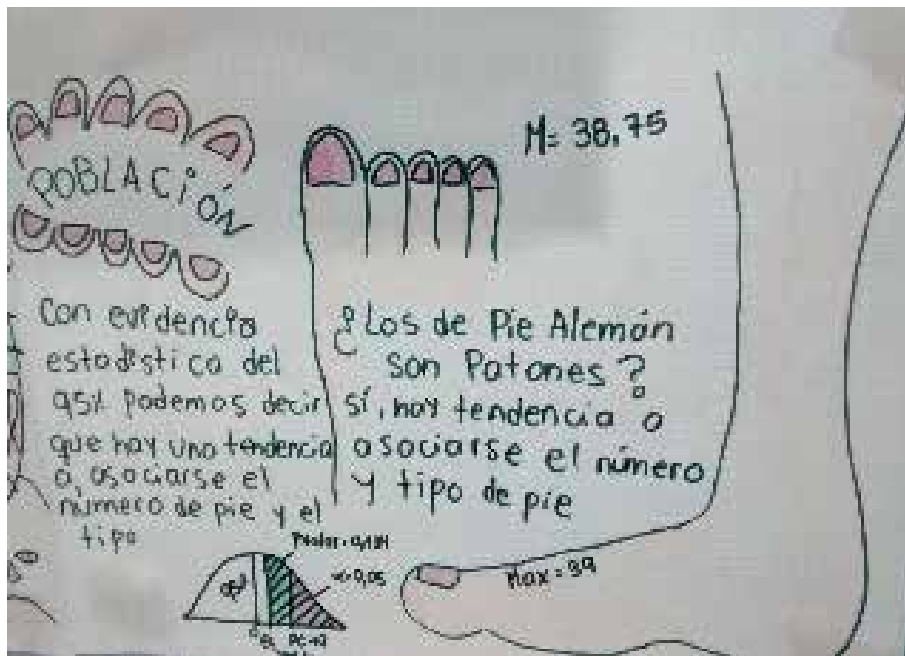 POBLACIÓN
Con evidencia
estadística del
95% Podemos decir
que hay una tendencia
a, asociarse el
número de pie y el
tipo
M= 38,75
¿Los de Pie Alemán
son Patones?
sí, hay tendencia a
asociarse el número
y tipo de pie
Max = 39